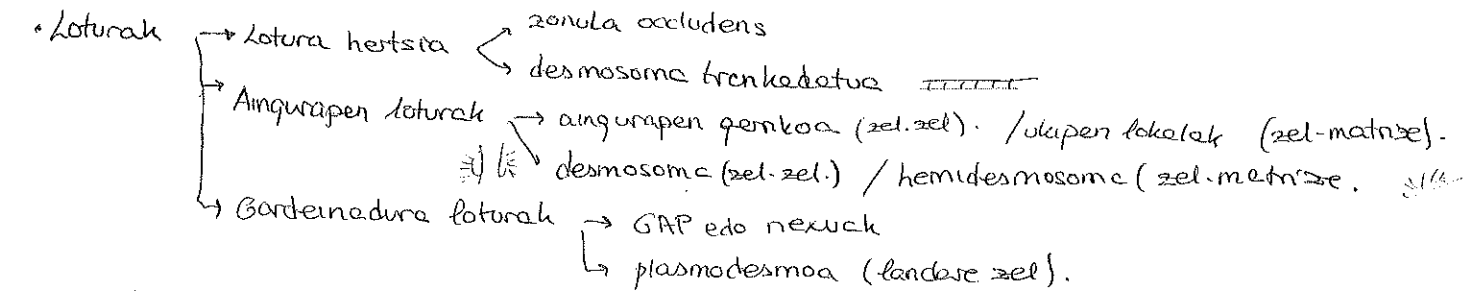 • Loturak → Lotura hertsia → zonula occludens
→ desmosoma trenkadatua
→ Aingurapen loturak → aingurapen gerrikoa (zel.zel). / ukipen lokalak (zel-matrize).
desmosoma (zel-zel.) / hemidesmosoma ( zel.matrize.
→ Gardeinadura loturak → GAP edo nexuak
→ plasmodesmoa (landare zel).